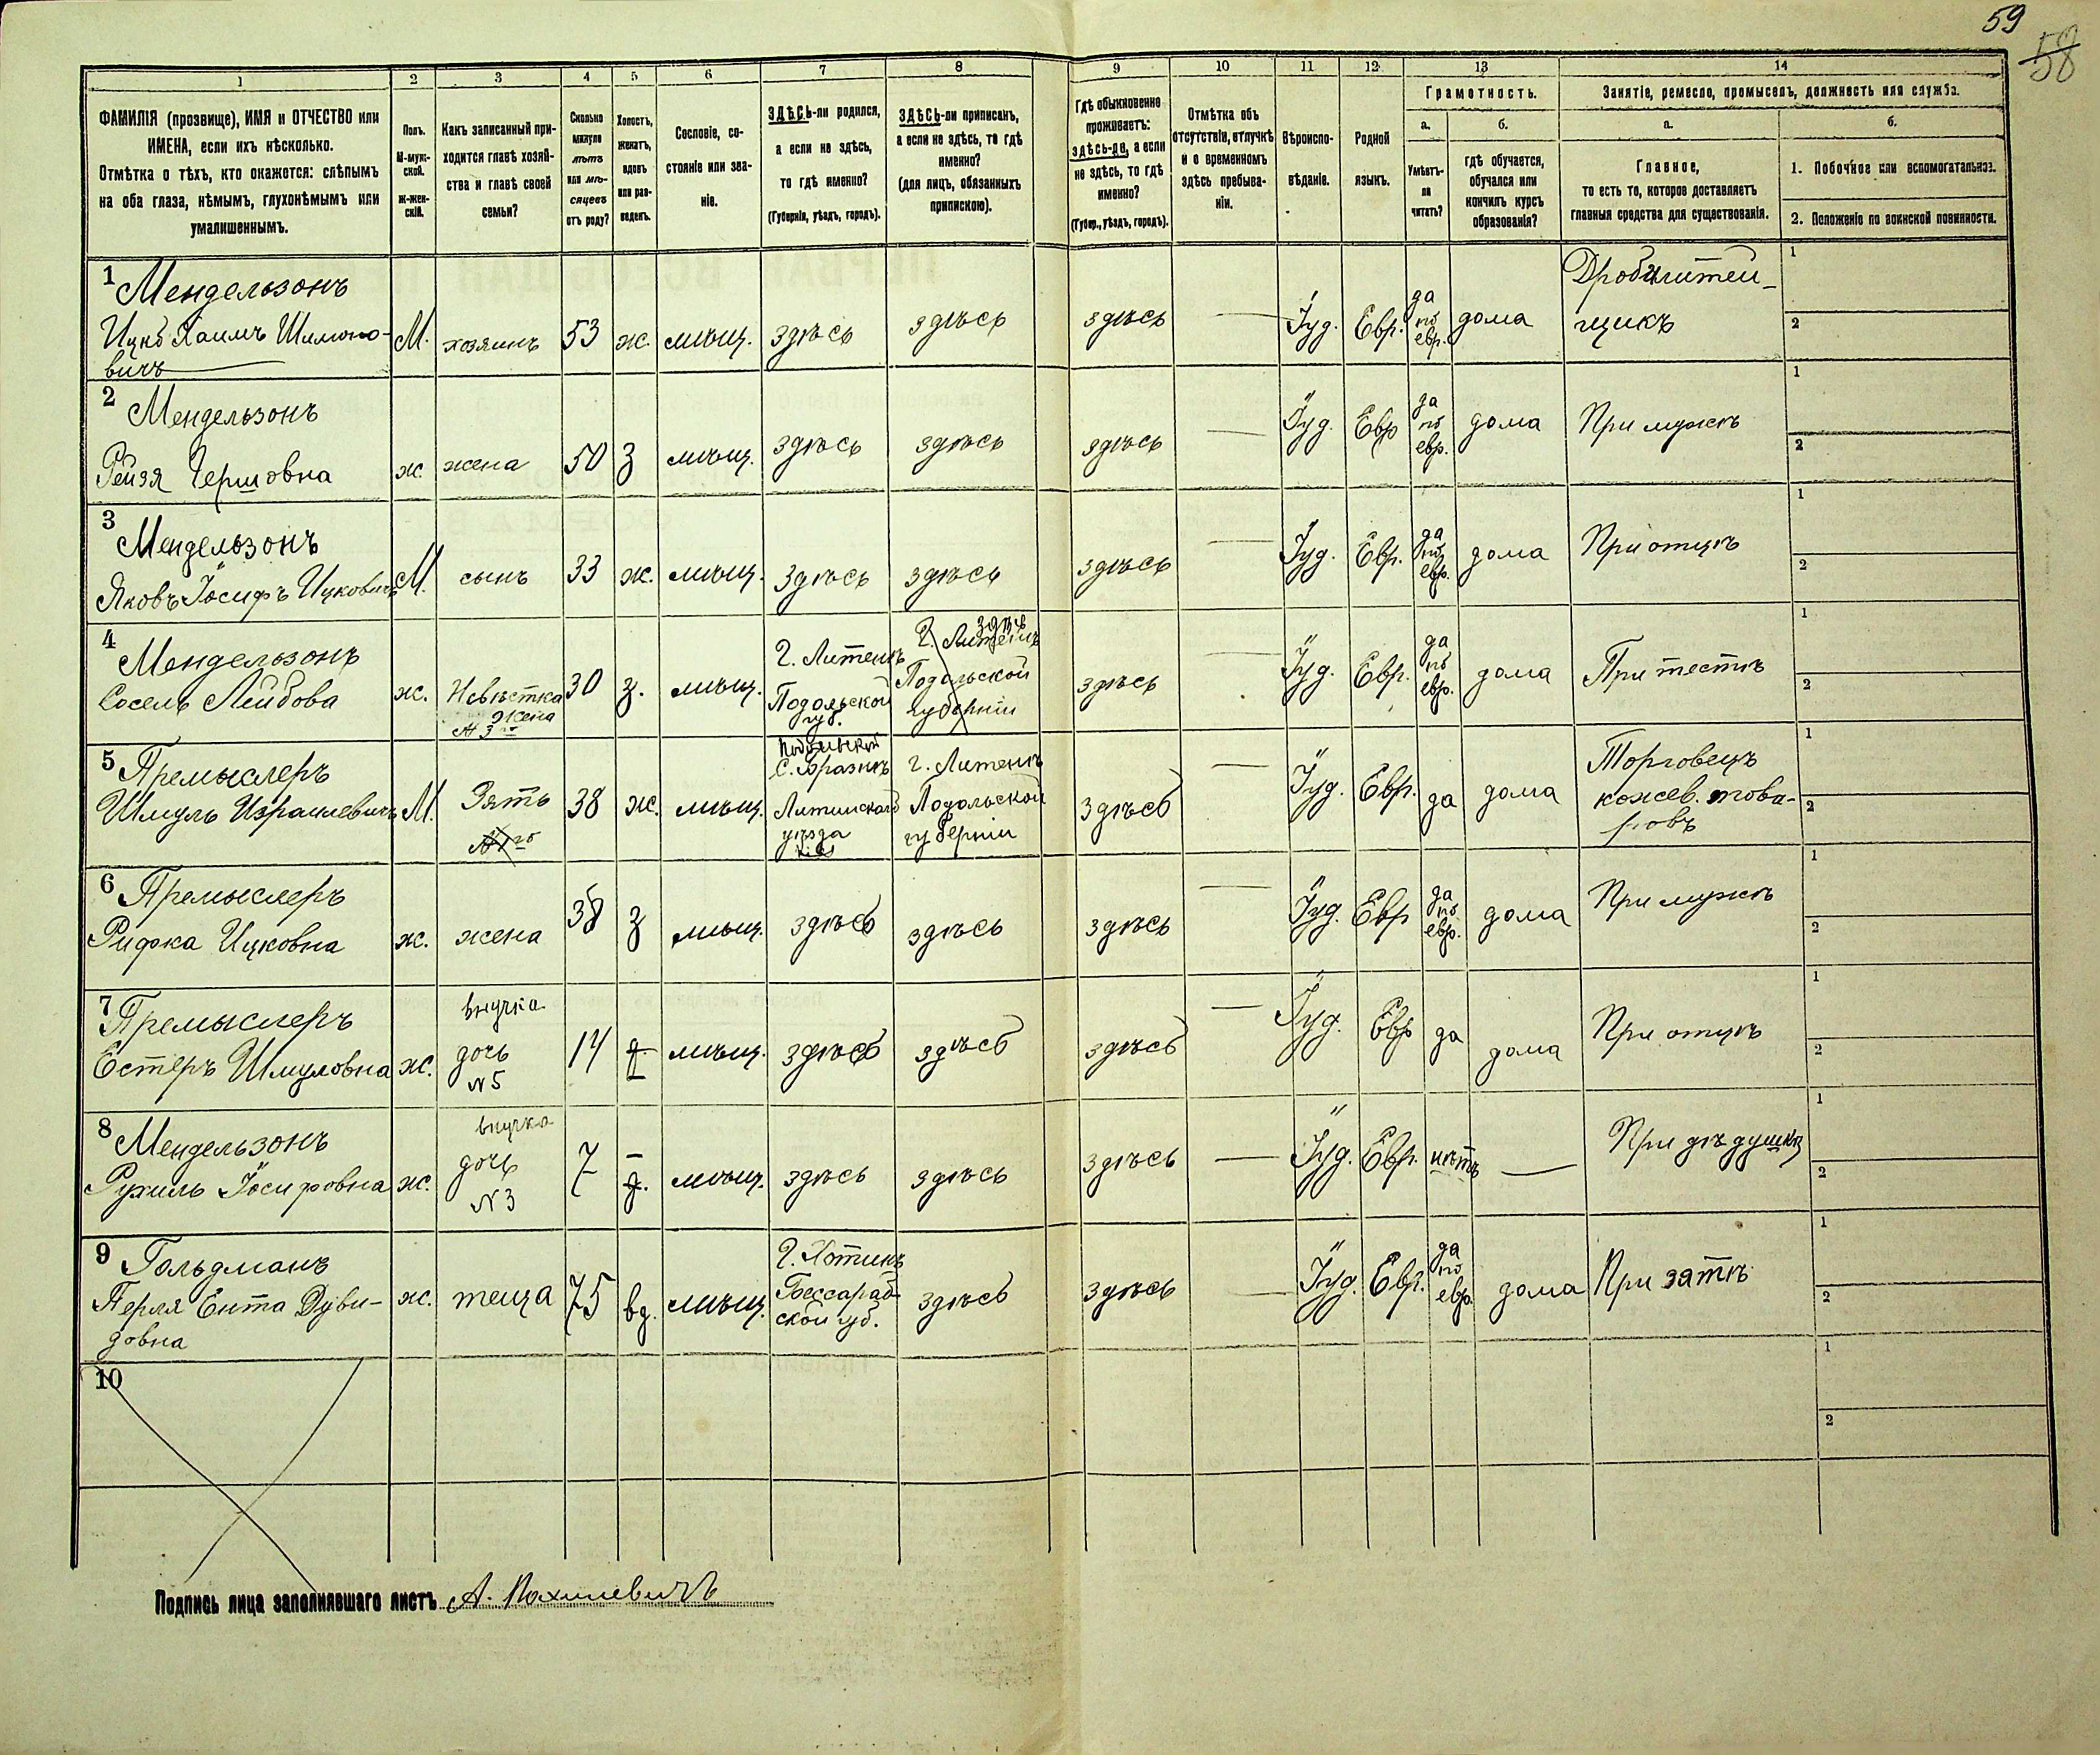 59
58
1
2
3
4
5
6
7
8
9
10
11
12
13
14
ФАМИЛІЯ (прозвище), ИМЯ и ОТЧЕСТВО или
ИМЕНА, если ихъ нѣсколько.
Отмѣтка о тѣхъ, кто окажется: слѣпымъ
на оба глаза, нѣмымъ, глухонѣмымъ или
умалишеннымъ.
Полъ.
М-муж-
ской.
Ж-жен-
скій.
Какъ записанный при-
ходится главѣ хозяй-
ства и главѣ своей
семьи?
Сколько
минуло
лѣтъ
или мѣ-
сяцевъ
отъ роду?
Холостъ,
женатъ,
вдовъ
или раз-
веденъ.
Сословіе, со-
стояніе или зва-
ніе.
ЗДѢСЬ-ли родился,
а если не здѣсь,
то гдѣ именно?
(Губернія, уѣздъ, городъ).
ЗДѢСЬ-ли приписанъ,
а если не здѣсь, то гдѣ
именно?
(для лицъ, обязанныхъ
припискою).
Гдѣ обыкновенно
проживаетъ:
здѣсь-ли, а если
не здѣсь, то гдѣ
именно?
(Губер., уѣздъ, городъ).
Отмѣтка объ
отсутствіи, отлучкѣ
и о временномъ
здѣсь пребыва-
ніи.
Вѣроиспо-
вѣданіе.
Родной
языкъ.
Грамотность.
а.
б.
Умѣетъ-
ли
читать?
гдѣ обучается,
обучался или
кончилъ курсъ
образованія?
Занятіе, ремесло, промыселъ, должность или служба.
а.
б.
Главное,
то есть то, которое доставляетъ
главныя средства для существованія.
1. Побочное или вспомогательное.
2. Положеніе по воинской повинности.
1 Мендельзонъ
Ицко Хаимъ Шимоно-
вичъ
М.
хозяинъ
53
ж.
мѣщ.
здѣсь
здѣсь
здѣсь
—
Іуд.
Евр.
да
по
евр.
дома
щикъ
1
2
2 Мендельзонъ
Рейзя Гершовна
ж.
жена
50
з
мѣщ.
здѣсь
здѣсь
здѣсь
—
Іуд.
Евр
да
по
евр.
дома
При мужѣ
1
2
3 Мендельзонъ
Яковъ Іосифъ Ицковичъ
М.
сынъ
33
ж.
мѣщ.
здѣсь
здѣсь
здѣсь
—
Іуд.
Евр.
да
по
евр.
дома
При отцѣ
1
2
4 Мендельзонъ
Сосель Лейбова
ж.
Невѣстка
жена
№ 3го
30
з.
мѣщ.
Г. Литенъ
Подольской
губ.
здѣсь
Г. Литенъ
Подольской
губерніи
здѣсь
—
Іуд.
Евр.
да
по
евр.
дома
При тестѣ
1
2
5 Премыслеръ
Шмуль Израилевичъ
М.
Зять
№ 1го
38
ж.
мѣщ.
Подольской
Литинскаго
уѣзда
г. Литенъ
Подольской
губерніи
здѣсь
—
Іуд.
Евр.
да
дома
Торговецъ
кожев. това-
ровъ
1
2
6 Премыслеръ
Рифка Ицковна
ж.
жена
38
з
мѣщ.
здѣсь
здѣсь
здѣсь
—
Іуд.
Евр
да
по
евр.
дома
При мужѣ
1
2
7 Премыслеръ
Естеръ Шмуловна
ж.
внучка
дочь
№ 5
14
мѣщ.
здѣсь
здѣсь
здѣсь
—
Іуд.
Евр
да
дома
При отцѣ
1
2
8 Мендельзонъ
Рухиль Іосифовна
ж.
внучка
дочь
№ 3
7
мѣщ.
здѣсь
здѣсь
здѣсь
—
Іуд.
Евр.
нѣтъ
—
При дѣдушкѣ
1
2
9 Гольдманъ
Перля Ента Дуви-
довна
ж.
теща
75
вд.
мѣщ.
Г. Хотинъ
Бессараб-
ской губ.
здѣсь
здѣсь
—
Іуд.
Евр.
да
по
евр.
дома
При зятѣ
1
2
10
1
2
Подпись лица заполнявшаго листъ А. Пахилевичъ